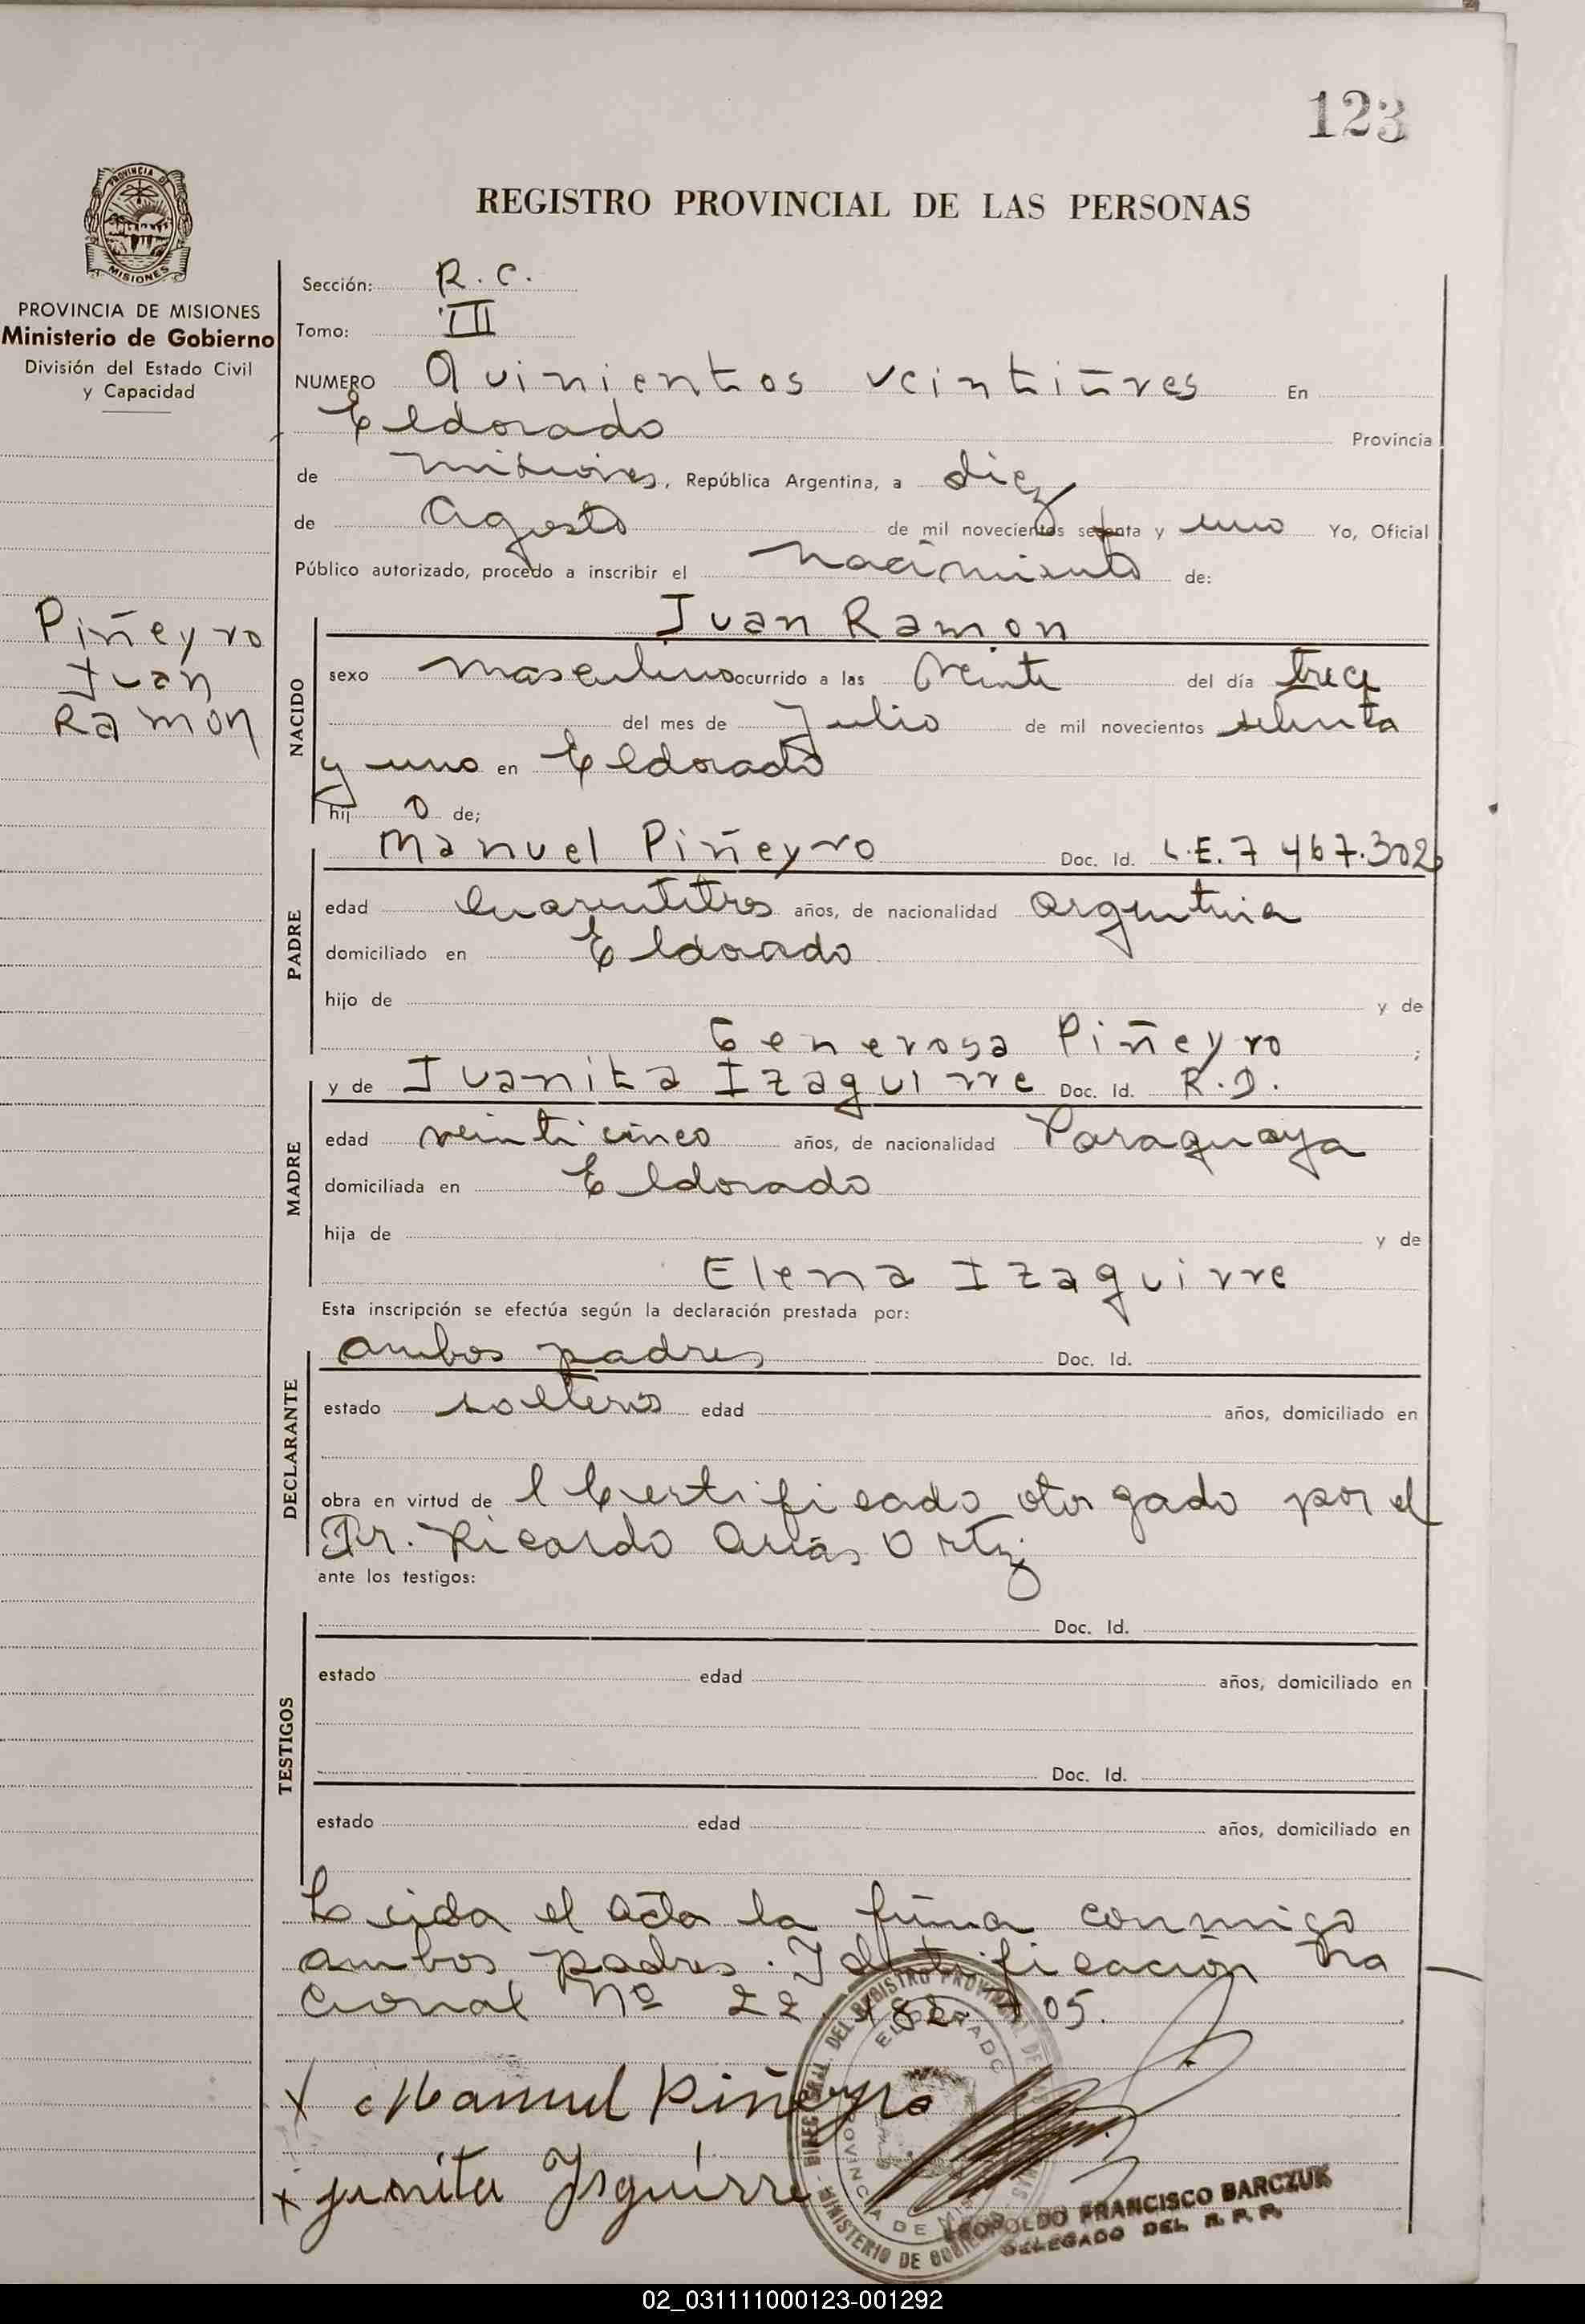 123
REGISTRO PROVINCIAL DE LAS PERSONAS
PROVINCIA DE MISIONES
PROVINCIA DE MISIONES
Ministerio de Gobierno
División del Estado Civil
y Capacidad
Piñeyro
Juan
Ramón
Sección: R. C.
Tomo: III
NUMERO Quinientos veintitres En
Eldorado Provincia
de misiones, República Argentina, a diez
de Agosto de mil novecientos setenta y uno Yo, Oficial
Público autorizado, procedo a inscribir el nacimiento de:
NACIDO
Juan Ramon
sexo masculino ocurrido a las veinte del día trece
del mes de Julio de mil novecientos setenta
y uno en Eldorado
hij o de;
PADRE
Manuel Piñeyro Doc. Id. L.E. 7 467.302
edad cuarentitres años, de nacionalidad argentina
domiciliado en Eldorado
hijo de y de
Generosa Piñeyro ;
MADRE
y de Juanita Izaguirre Doc. Id. R.D.
edad veinticinco años, de nacionalidad Paraguaya
domiciliada en Eldorado
hija de y de
Elena Izaguirre
Esta inscripción se efectúa según la declaración prestada por:
DECLARANTE
ambos padres Doc. Id.
estado solteros edad años, domiciliado en
obra en virtud de l Certificado otorgado por el
Dr. Ricardo Arias Ortiz
ante los testigos:
TESTIGOS
Doc. Id.
estado edad años, domiciliado en
Doc. Id.
estado edad años, domiciliado en
Leida el acta la firma conmigo
ambos padres. Identificación Na
cional Nº 22
Manuel Piñeyro
junita Isguirre
ELDORADO
LEOPOLDO FRANCISCO BARCZUK
DELEGADO DEL R. P. P.
02_031111000123-001292